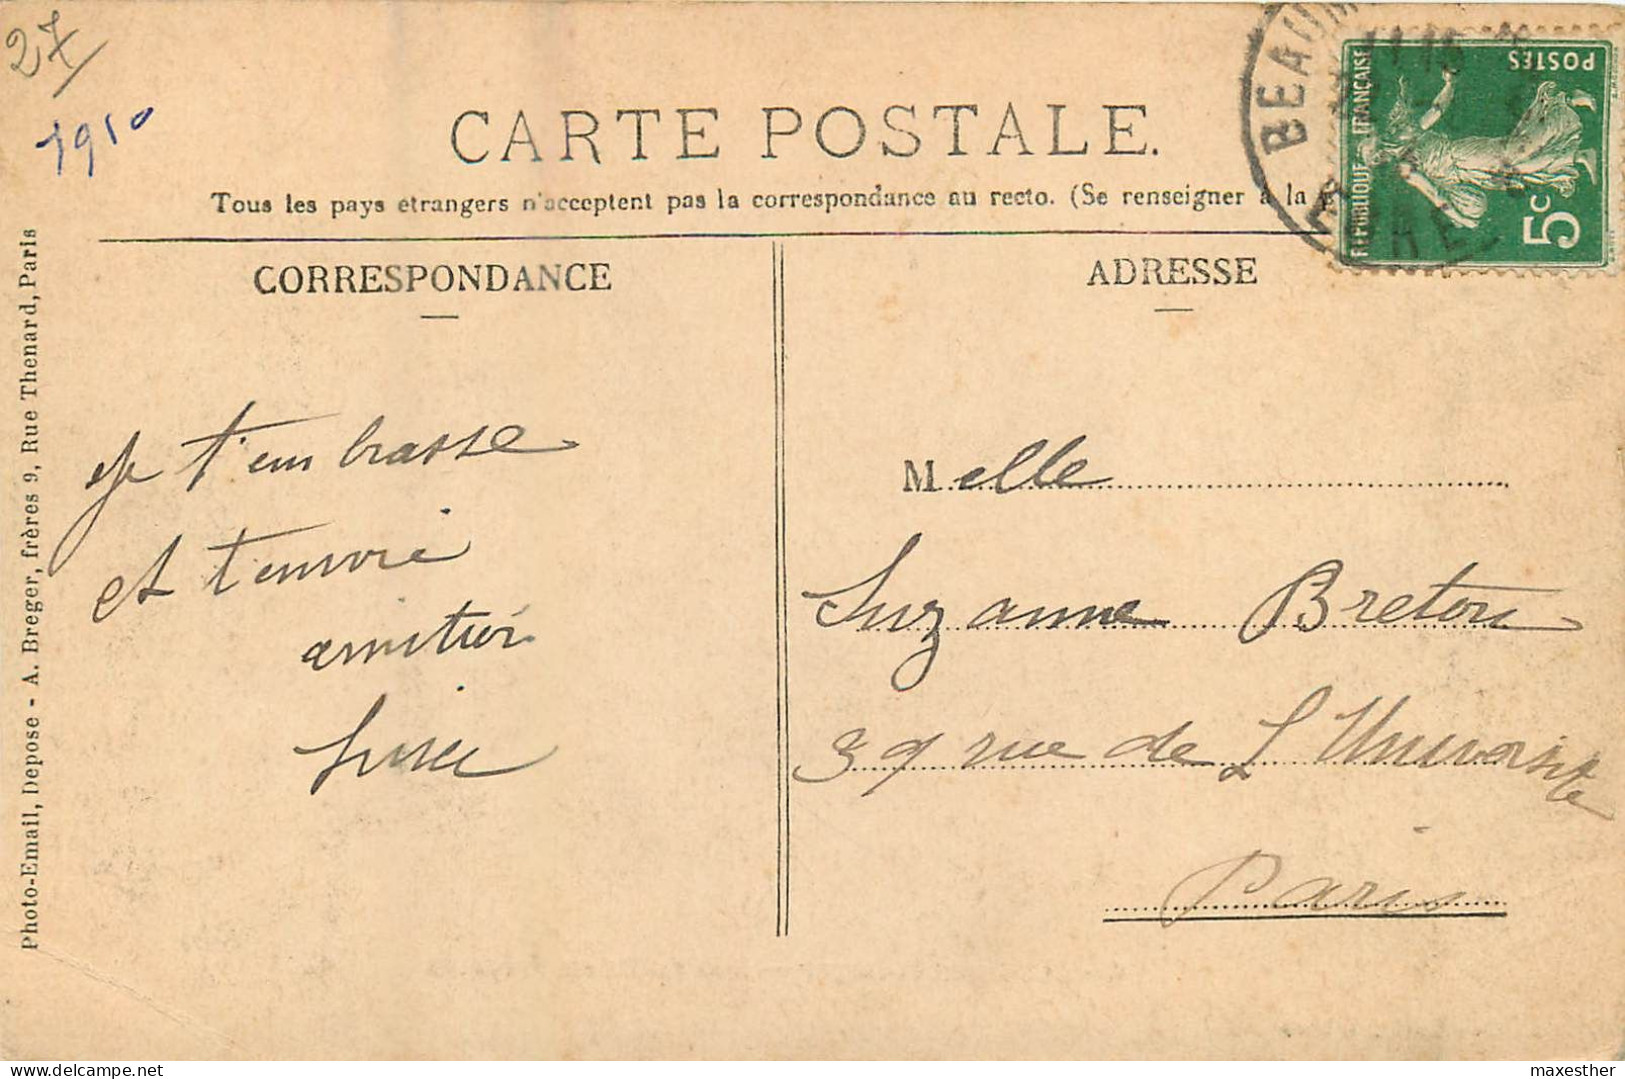 27
1910
CARTE POSTALE.
Tous les pays étrangers n'acceptent pas la correspondance au recto. (Se renseigner à la
BEAUM
RÉPUBLIQUE FRANÇAISE
POSTES
5c
CORRESPONDANCE
ADRESSE
Je t'embrasse
et t'envoie
amitiés
Melle
Suzanne Breton
39 rue de L'Université
Paris
Photo-Email, Depose - A. Breger, frères 9, Rue Thenard, Paris
delcampe.net
maxesther